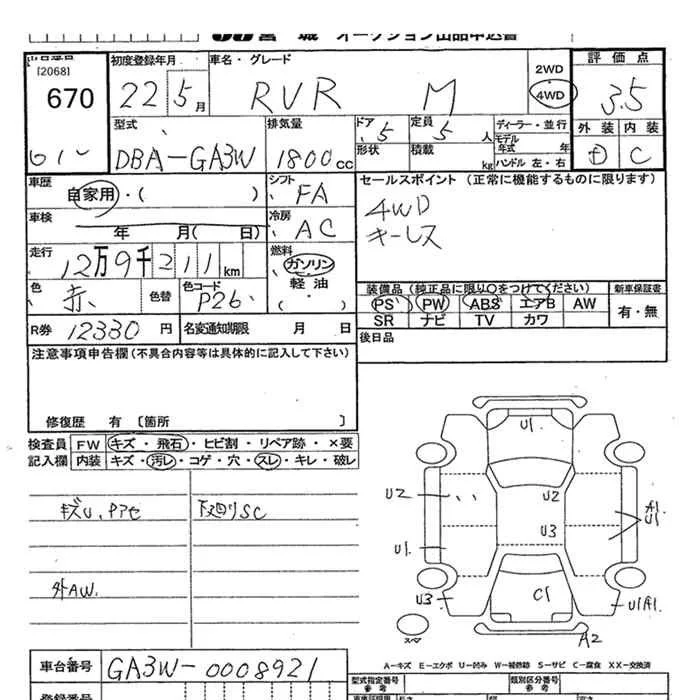 宮 城 オークション出品申込書
出品番号
[2068]
670
初度登録年月
22 5月
車名・グレード
RVR M
2WD
4WD
評価点
3.5
型式
DBA-GA3W
排気量
1800cc
ドア
5
定員
5人
形状
積載
kg
ディーラー・並行
モデル年式 年
ハンドル 左・右
外装 内装
D C
車歴
自家用・( )
シフト
FA
セールスポイント (正常に機能するものに限ります)
4WD
キーレス
車検
年 月( 日)
冷房
AC
走行
12万9千211km
燃料
ガソリン
軽油
( ・ )
色
赤
色替
色コード
P26
装備品 (純正品に限り〇をつけてください)
新車保証書
PS PW ABS エアB AW
有・無
SR ナビ TV カワ
R券 12330円
名変通知期限 月 日
後日品
注意事項申告欄(不具合内容等は具体的に記入して下さい)
修復歴 有 〔箇所 〕
検査員 FW キズ・飛石・ヒビ割・リペア跡・×要
記入欄 内装 キズ・汚レ・コゲ・穴・スレ・キレ・破レ
キズU、Pアセ
下廻りSC
外AW.
U1
U2
U2
U3
A1
U1
U1
U3
C1
U1A1
スペア
A2
A-キズ E-エクボ U-凹み W-補修跡 S-サビ C-腐食 XX-交換済
車台番号
GA3W-0008921
型式指定番号
参考
類別区分番号
参考
登録番号